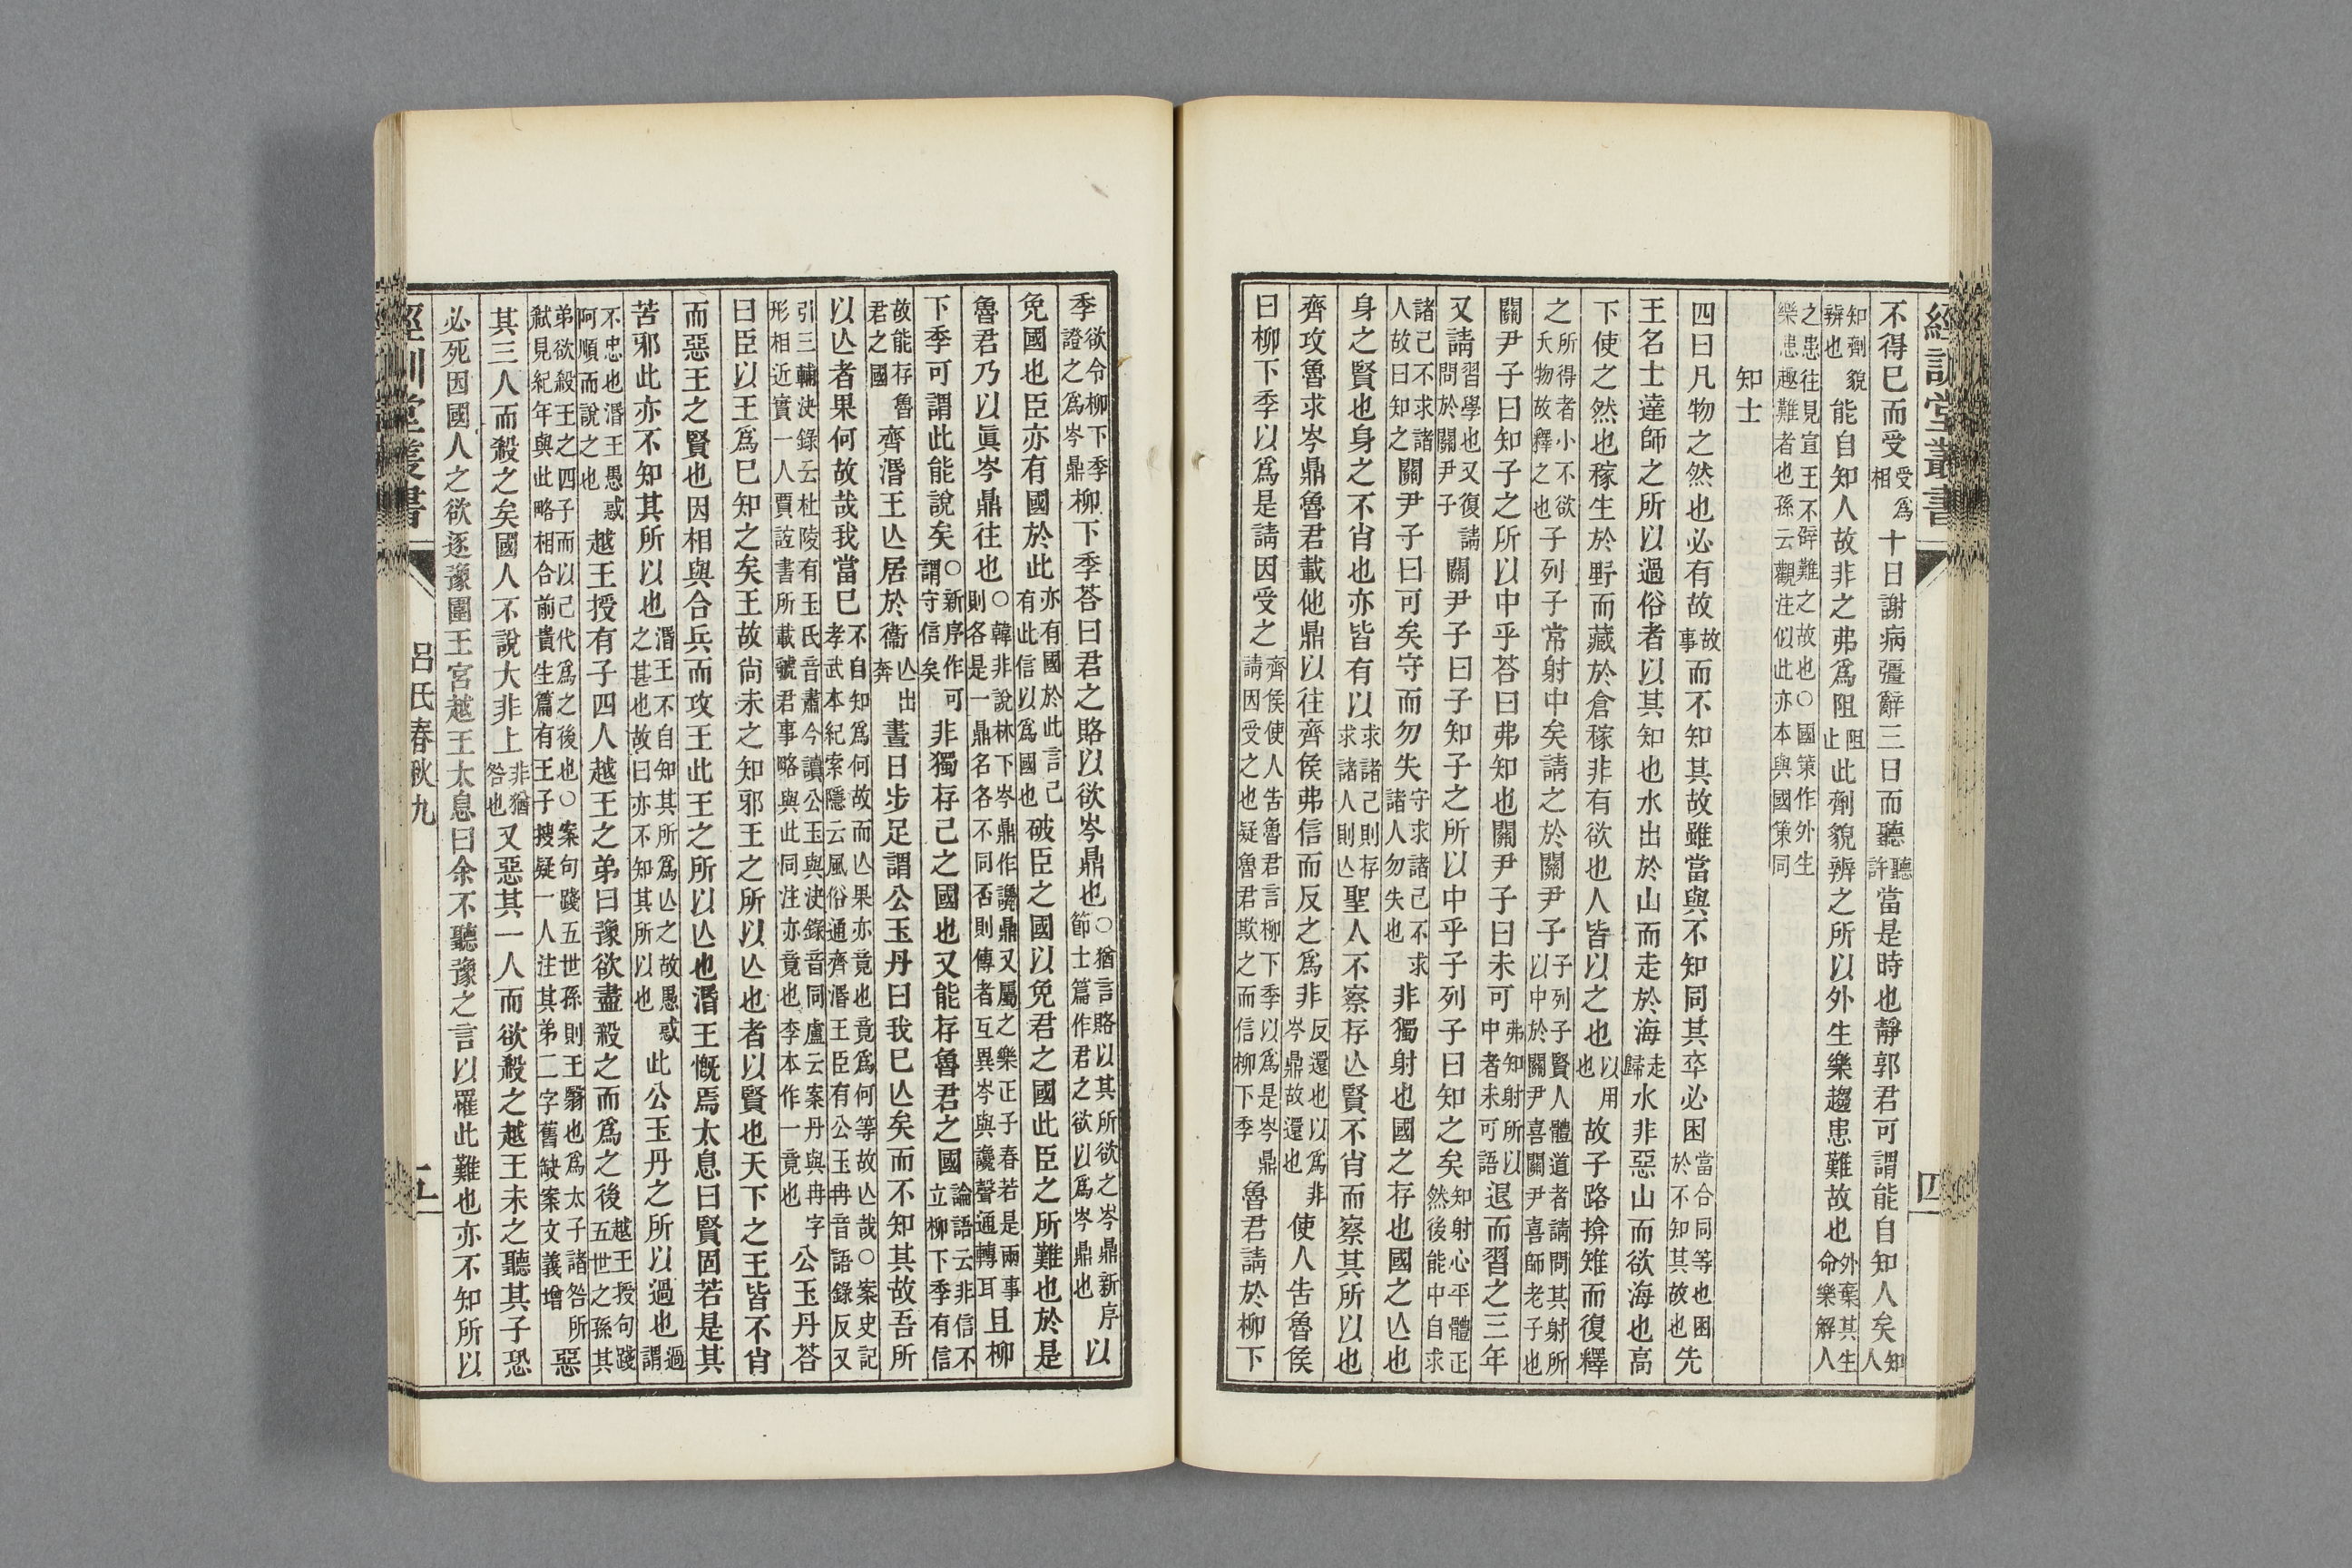 經訓堂叢書 四
不得已而受受爲相十日謝病彊辭三日而聽聽許當是時也靜郭君可謂能自知人矣知人
知劑貌辨也能自知人故非之弗爲阻阻止此劑貌辨之所以外生樂趨患難故也外棄其生命樂解人
之患往見宣王不辟難之故也○國策作外生樂患趣難者也孫云觀注似此亦本與國策同
知士
四曰凡物之然也必有故故事而不知其故雖當與不知同其卒必困當合同等也困於不知其故也先
王名士達師之所以過俗者以其知也水出於山而走於海走歸水非惡山而欲海也高
下使之然也稼生於野而藏於倉稼非有欲也人皆以之也以用也故子路揜雉而復釋
之所得者小不欲夭物故釋之也子列子常射中矣請之於關尹子子列子賢人體道者請問其射所以中於關尹喜關尹喜師老子也
關尹子曰知子之所以中乎荅曰弗知也關尹子曰未可弗知射所以中者未可語退而習之三年
又請習學也又復請問於關尹子關尹子曰子知子之所以中乎子列子曰知之矣知射心平體正然後能中自求
諸己不求諸人故曰知之關尹子曰可矣守而勿失守求諸己不求諸人勿失也非獨射也國之存也國之亾也
身之賢也身之不肖也亦皆有以求諸己則存求諸人則亾聖人不察存亾賢不肖而察其所以也
齊攻魯求岑鼎魯君載他鼎以往齊侯弗信而反之爲非反還也以爲非岑鼎故還也使人告魯侯
曰柳下季以爲是請因受之齊侯使人告魯君言柳下季以爲是岑鼎請因受之也疑魯君欺之而信柳下季魯君請於柳下
季欲令柳下季證之爲岑鼎柳下季荅曰君之賂以欲岑鼎也○猶言賂以其所欲之岑鼎新序節士篇作君之欲以爲岑鼎也以
免國也臣亦有國於此亦有國於此言己有此信以爲國也破臣之國以免君之國此臣之所難也於是
魯君乃以眞岑鼎往也○韓非說林下岑鼎作讒鼎又屬之樂正子春若是兩事則各是一鼎名各不同否則傳者互異岑與讒聲通轉耳且柳
下季可謂此能說矣○新序作可謂守信矣非獨存己之國也又能存魯君之國論語云非信不立柳下季有信
故能存魯君之國齊湣王亾居於衞亾出奔晝日步足謂公玉丹曰我已亾矣而不知其故吾所
以亾者果何故哉我當已不自知爲何故而亾果亦竟也竟爲何等故亾哉○案史記孝武本紀索隱云風俗通齊湣王臣有公玉冉音語錄反又
引三輔決錄云杜陵有玉氏音肅今讀公玉與決錄音同盧云案丹與冉字形相近實一人賈誼書所載虢君事略與此同注亦竟也李本作一竟也公玉丹荅
曰臣以王爲已知之矣王故尙未之知邪王之所以亾也者以賢也天下之王皆不肖
而惡王之賢也因相與合兵而攻王此王之所以亾也湣王慨焉太息曰賢固若是其
苦邪此亦不知其所以也湣王不自知其所爲亾之故愚惑之甚也故曰亦不知其所以也此公玉丹之所以過也過謂
不忠也湣王愚惑阿順而說之也越王授有子四人越王之弟曰豫欲盡殺之而爲之後越王授句踐五世之孫其
弟欲殺王之四子而以己代爲之後也○案句踐五世孫則王翳也爲太子諸咎所弒見紀年與此略相合前貴生篇有王子搜疑一人注其弟二字舊缺案文義增惡
其三人而殺之矣國人不說大非上非猶咎也又惡其一人而欲殺之越王未之聽其子恐
必死因國人之欲逐豫圍王宮越王太息曰余不聽豫之言以罹此難也亦不知所以
經訓堂叢書 呂氏春秋九 五